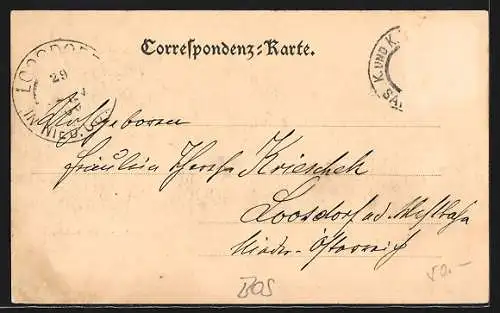 Correspondenz-Karte.
LOOSDORF
29
IN NIED. OE
K. UND K.
SA
Hochgeboren
Fräulein Theresa Krieschek
Loosdorf a/d Westbahn
Nieder-Österreich
BOS
50.-